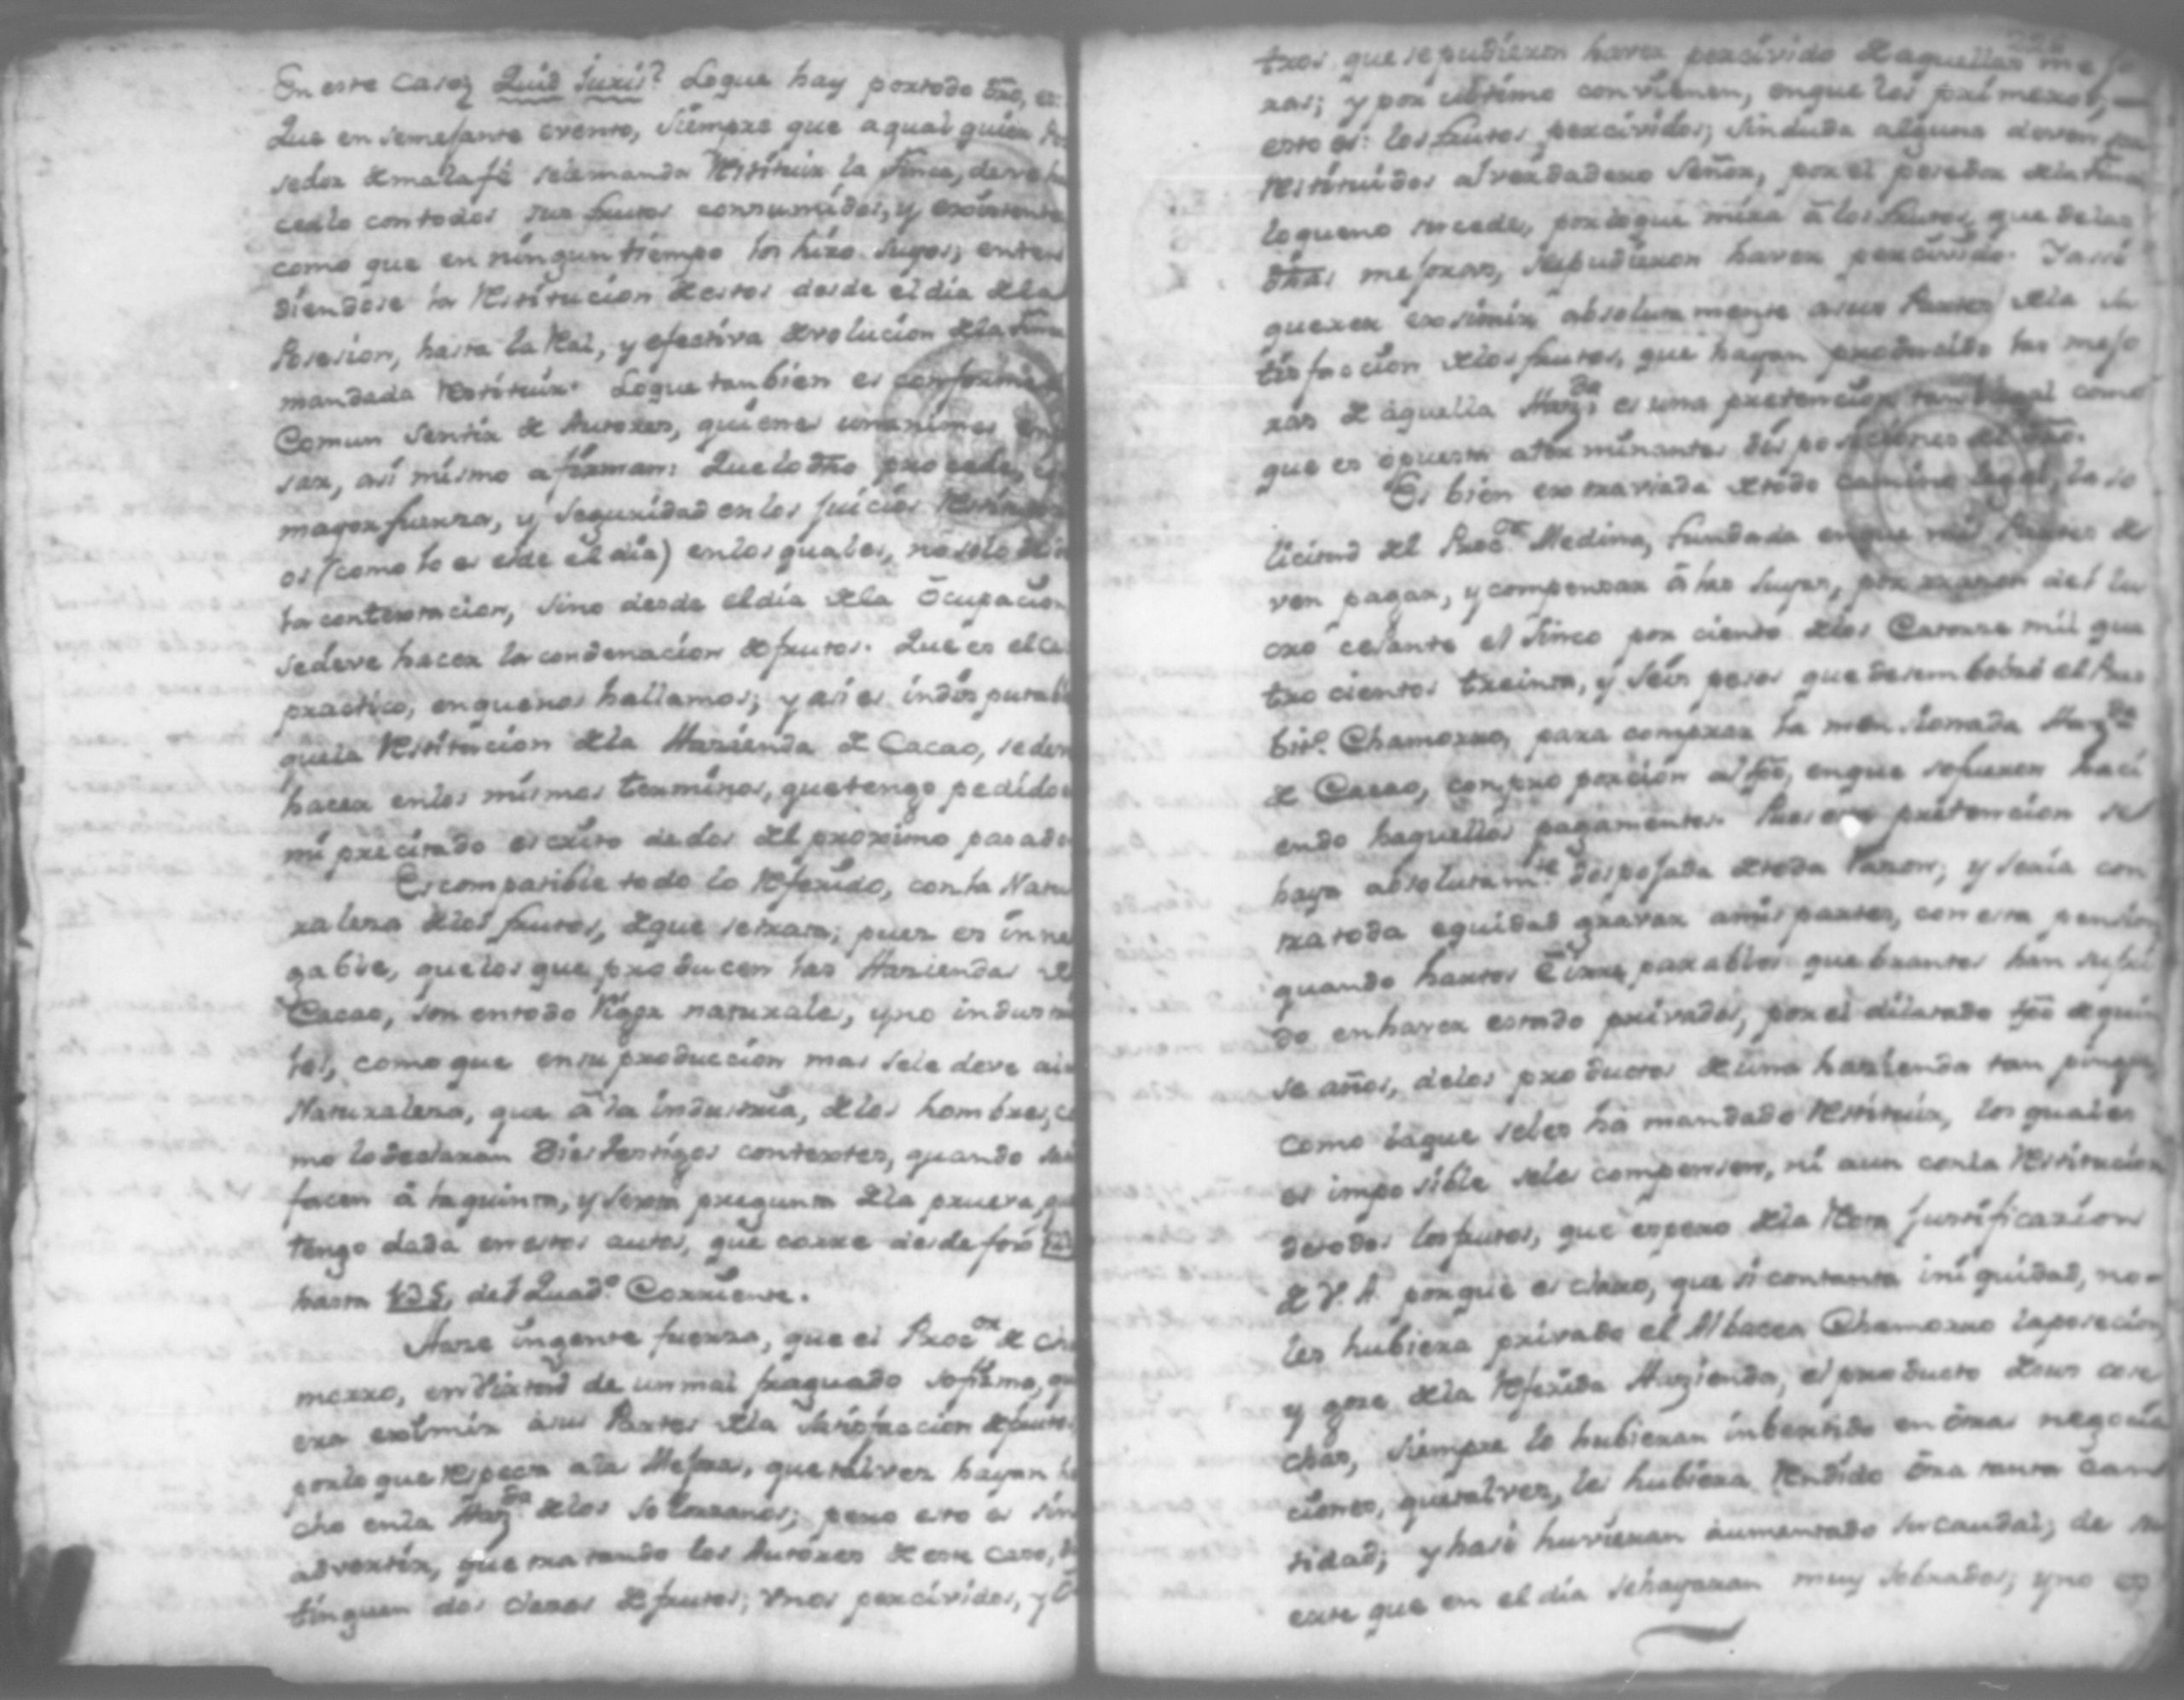 En este caso, Quid Juris? Loque hay portodo dro, es:
Que en semejante evento, siempre que aqual quiera
sedor de mala fé selemanda restituir la finca, deve
cerlo contodos sus frutos consumidos, y existentes
como que en ningun tiempo los hizo suyos; enten
diendose la restitucion destos desde eldia dela
Posesion, hasta la real, y efectiva devolucion dela finca
mandada restituir. Loque tanbien es conforme
Comun Sentir de Autores, quienes unanimes
sax, asi mismo afirman: Quelo dho procede,
mayor fuerza, y seguridad enlos juicios
os (como lo es este el dia) enlos quales, no solo
la contextacion, sino desde eldia dela Ocupacion
sedeve hacer la condenacion de frutos. Que es el ca
practico, enquenos hallamos; y asi es indisputable
quela restitucion dela Hazienda de Cacao, sedeve
hacer enlos mismos terminos, que tengo pedidos
mi precitado escrito de dos del proximo pasado
Es compatible todo lo referido, con la Natu
raleza delos frutos, de que se trata; pues es inne
gable, quelos que producen las Haziendas de
Cacao, son en todo rigor naturales, y no industria
les, como que en su produccion mas sele deve ala
Naturaleza, que â la industria, delos hombres, co
mo lo declaran Diez testigos contextes, quando satis
facen â la quinta, y sexta pregunta dela prueva, que
tengo dada en estos autos, que corre desde foxs
hasta 135, del Quadº. Corriente.
Haze ingente fuerza, que el Procor. de Cha
morro, en virtud de un mal fraguado sofismo,
era eximir asus Partes dela satisfaccion de frutos
porlo que respecta ala Mejoras, que talvez hayan he
cho enla Hazda. delos Solorzanos; pero esto es sin
advertir, que tratando los Autores de este caso, di
tinguen dos clases de frutos; unos percividos, y o
tros que se pudieron haver percivido de aquellas mejo
ras; y por ultimo convienen, enque los primeros,
esto es: los frutos percividos, sinduda alguna deven ser
restituidos al verdadero Señor, por el poseedor dela finca
loqueno sucede, por loque mira â los frutos, que delas
dhas mejoras, sepudieron haver percivido. Y assi
querer eximir absolutamente asus Partes dela sa
tisfaccion delos frutos, que hayan producido las mejo
ras de aquella Hazda. es una pretencion tan ilegal como
que es opuesta a terminantes disposiciones del dro.
Es bien extraviada de todo camino legal, la so
licitud del Procor. Medina, fundada enque mis Partes de
ven pagar, y compensar â las suyas, por razon del lu
cro cesante el sinco por ciento delos Catorze mil qua
trocientos treinta, y seis pesos que desembolsó el Pres
bitº. Chamorro, para comprar la mensionada Hazda
de Cacao, con proporcion al tpo, enque sefueron haci
endo haquellos pagamentos. Pues esta pretencion se
haya absolutamte. despojada de toda razon; y seria con
tra toda equidad gravar amis partes, con esta pension
quando hartos Irreparables quebrantos han sufri
do en haver estado privados, por el dilatado tpo de quin
se años, delos productos de una hazienda tan pingue
como laque seles ha mandado restituir, los quales
es imposible seles compensen, ni aun con la restitucion
detodos los frutos, que espero dela recta justificazion
de V. A. porque es claro, que si con tanta iniquidad, no
les hubiera privado el Albacea Chamorro la posecion
y goze dela referida Hazienda, el producto desus cose
chas, siempre lo hubieran inbertido en otras negocia
ciones, que talvez, les hubiera rendido otra tanta can
tidad; y hasi huvieran aumentado su caudal; de
erte que en el dia se hayaran muy sobrados; y no